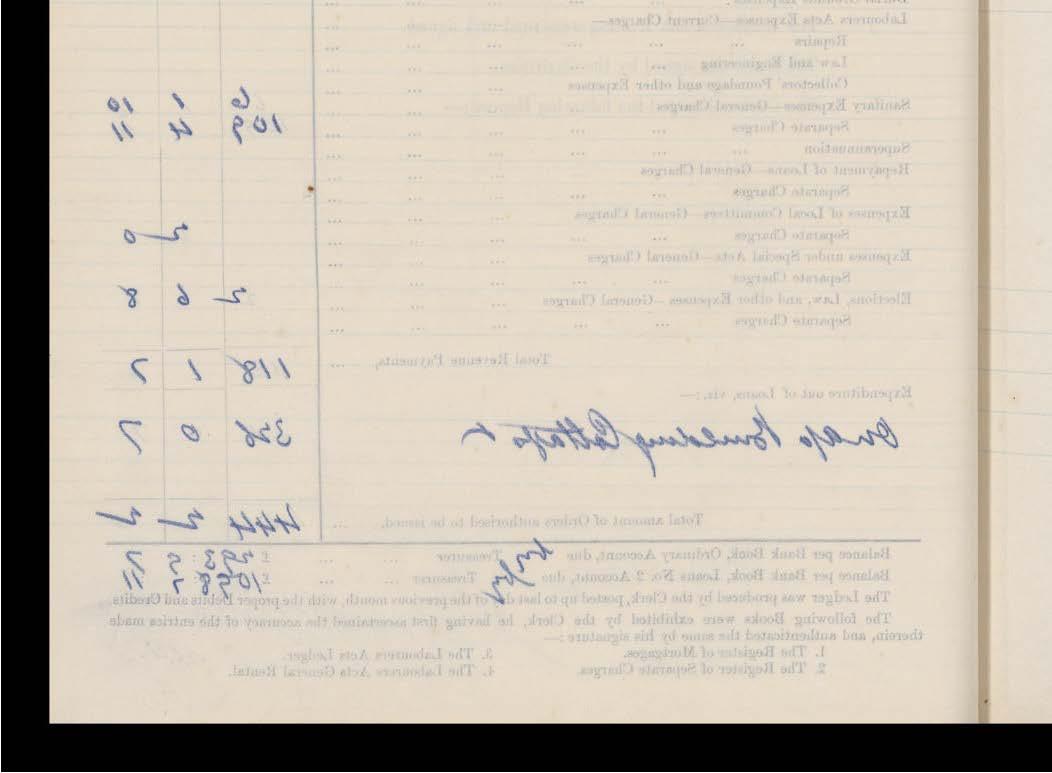 Labourers Acts Expenses—Current Charges—
Repairs ... ... ... ... ... ...
Law and Engineering ... ... ... ... ...
Collectors' Poundage and other Expenses ... ... ...
Sanitary Expenses—General Charges ... ... ... ... ... 6 1 10
Separate Charges ... ... ... ... ... 109 4 11
Superannuation ... ... ... ... ... ...
Repayment of Loans—General Charges ... ... ... ...
Separate Charges ... ... ... ...
Expenses of Local Committees—General Charges ... ... ... ...
Separate Charges ... ... ... ... ... 2 0
Expenses under Special Acts—General Charges ... ... ... ...
Separate Charges ... ... ... ... ...
Elections, Law, and other Expenses—General Charges ... ... ... ... 2 6 8
Separate Charges ... ... ... ... ...
Total Revenue Payments, ... 118 1 7
Expenditure out of Loans, viz.:—
Building Cottages 326 0 7
Total amount of Orders authorised to be issued, ... 444 2 2
Balance per Bank Book, Ordinary Account, due by Treasurer ... ... £
Balance per Bank Book, Loans No. 2 Account, due by Treasurer ... ... £
The Ledger was produced by the Clerk, posted up to last day of the previous month, with the proper Debits and Credits.
The following Books were exhibited by the Clerk, he having first ascertained the accuracy of the entries made
therein, and authenticated the same by his signature :—
1. The Register of Mortgages. 3. The Labourers Acts Ledger.
2. The Register of Separate Charges. 4. The Labourers Acts General Rental.